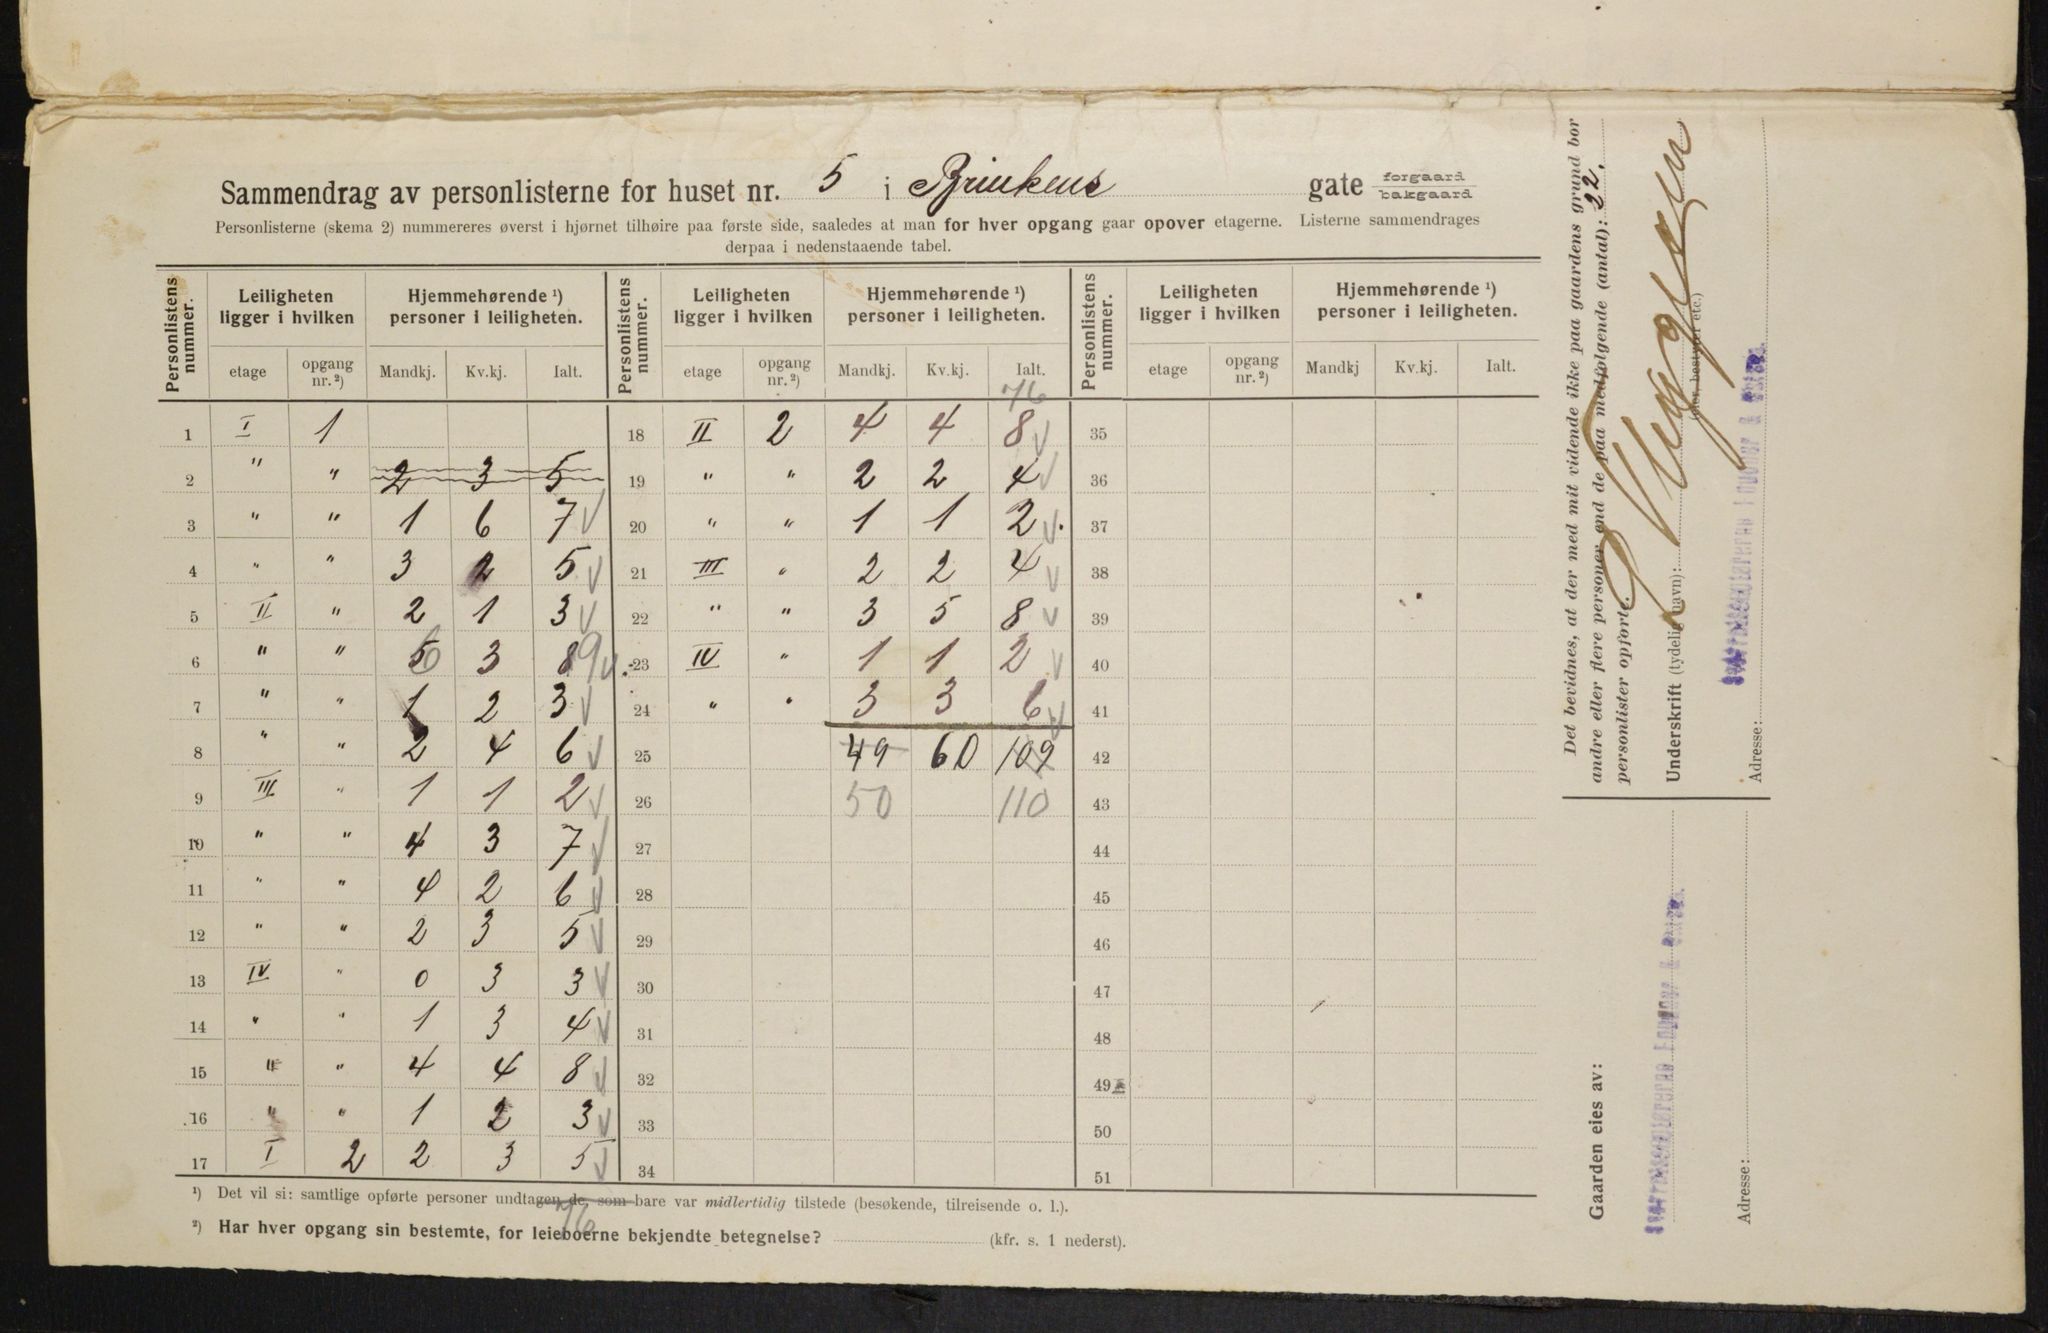 Sammendrag av personlisterne for huset nr. 5 i Brinkens gate forgaard bakgaard
Personlisterne (skema 2) nummereres øverst i hjørnet tilhøire paa første side, saaledes at man for hver opgang gaar opover etagerne. Listerne sammendrages
derpaa i nedenstaaende tabel.
Personlistens nummer. Leiligheten ligger i hvilken Hjemmehørende ¹) personer i leiligheten. Personlistens nummer. Leiligheten ligger i hvilken Hjemmehørende ¹) personer i leiligheten. Personlistens nummer. Leiligheten ligger i hvilken Hjemmehørende ¹) personer i leiligheten.
etage opgang nr. ²) Mandkj. Kv.kj. Ialt. etage opgang nr. ²) Mandkj. Kv.kj. Ialt. etage opgang nr. ²) Mandkj Kv.kj. Ialt.
76
1 I 1 18 II 2 4 4 8 35
2 " " 2 3 5 19 " " 2 2 4 36
3 " " 1 6 7 20 " " 1 1 2 37
4 " " 3 2 5 21 III " 2 2 4 38
5 II " 2 1 3 22 " " 3 5 8 39
6 " " 5 6 3 8 9 23 IV " 1 1 2 40
7 " " 1 2 3 24 " " 3 3 6 41
8 " " 2 4 6 25 49 60 109 42
9 III " 1 1 2 26 50 110 43
10 " " 4 3 7 27 44
11 " " 4 2 6 28 45
12 " " 2 3 5 29 46
13 IV " 0 3 3 30 47
14 " " 1 3 4 31 48
15 " " 4 4 8 32 49
16 " " 1 2 3 33 50
17 I 2 2 3 5 34 51
¹) Det vil si: samtlige opførte personer undtagen de, som bare var midlertidig tilstede (besøkende, tilreisende o. l.).
76
²) Har hver opgang sin bestemte, for leieboerne bekjendte betegnelse? (kfr. s. 1 nederst).
Det bevidnes, at der med mit vidende ikke paa gaardens grund bor
andre eller flere personer end de paa medfølgende (antal): 22.
personlister opførte.
Underskrift (tydelig navn):
(eier, bestyrer etc.)
Adresse:
Gaarden eies av:
Adresse: